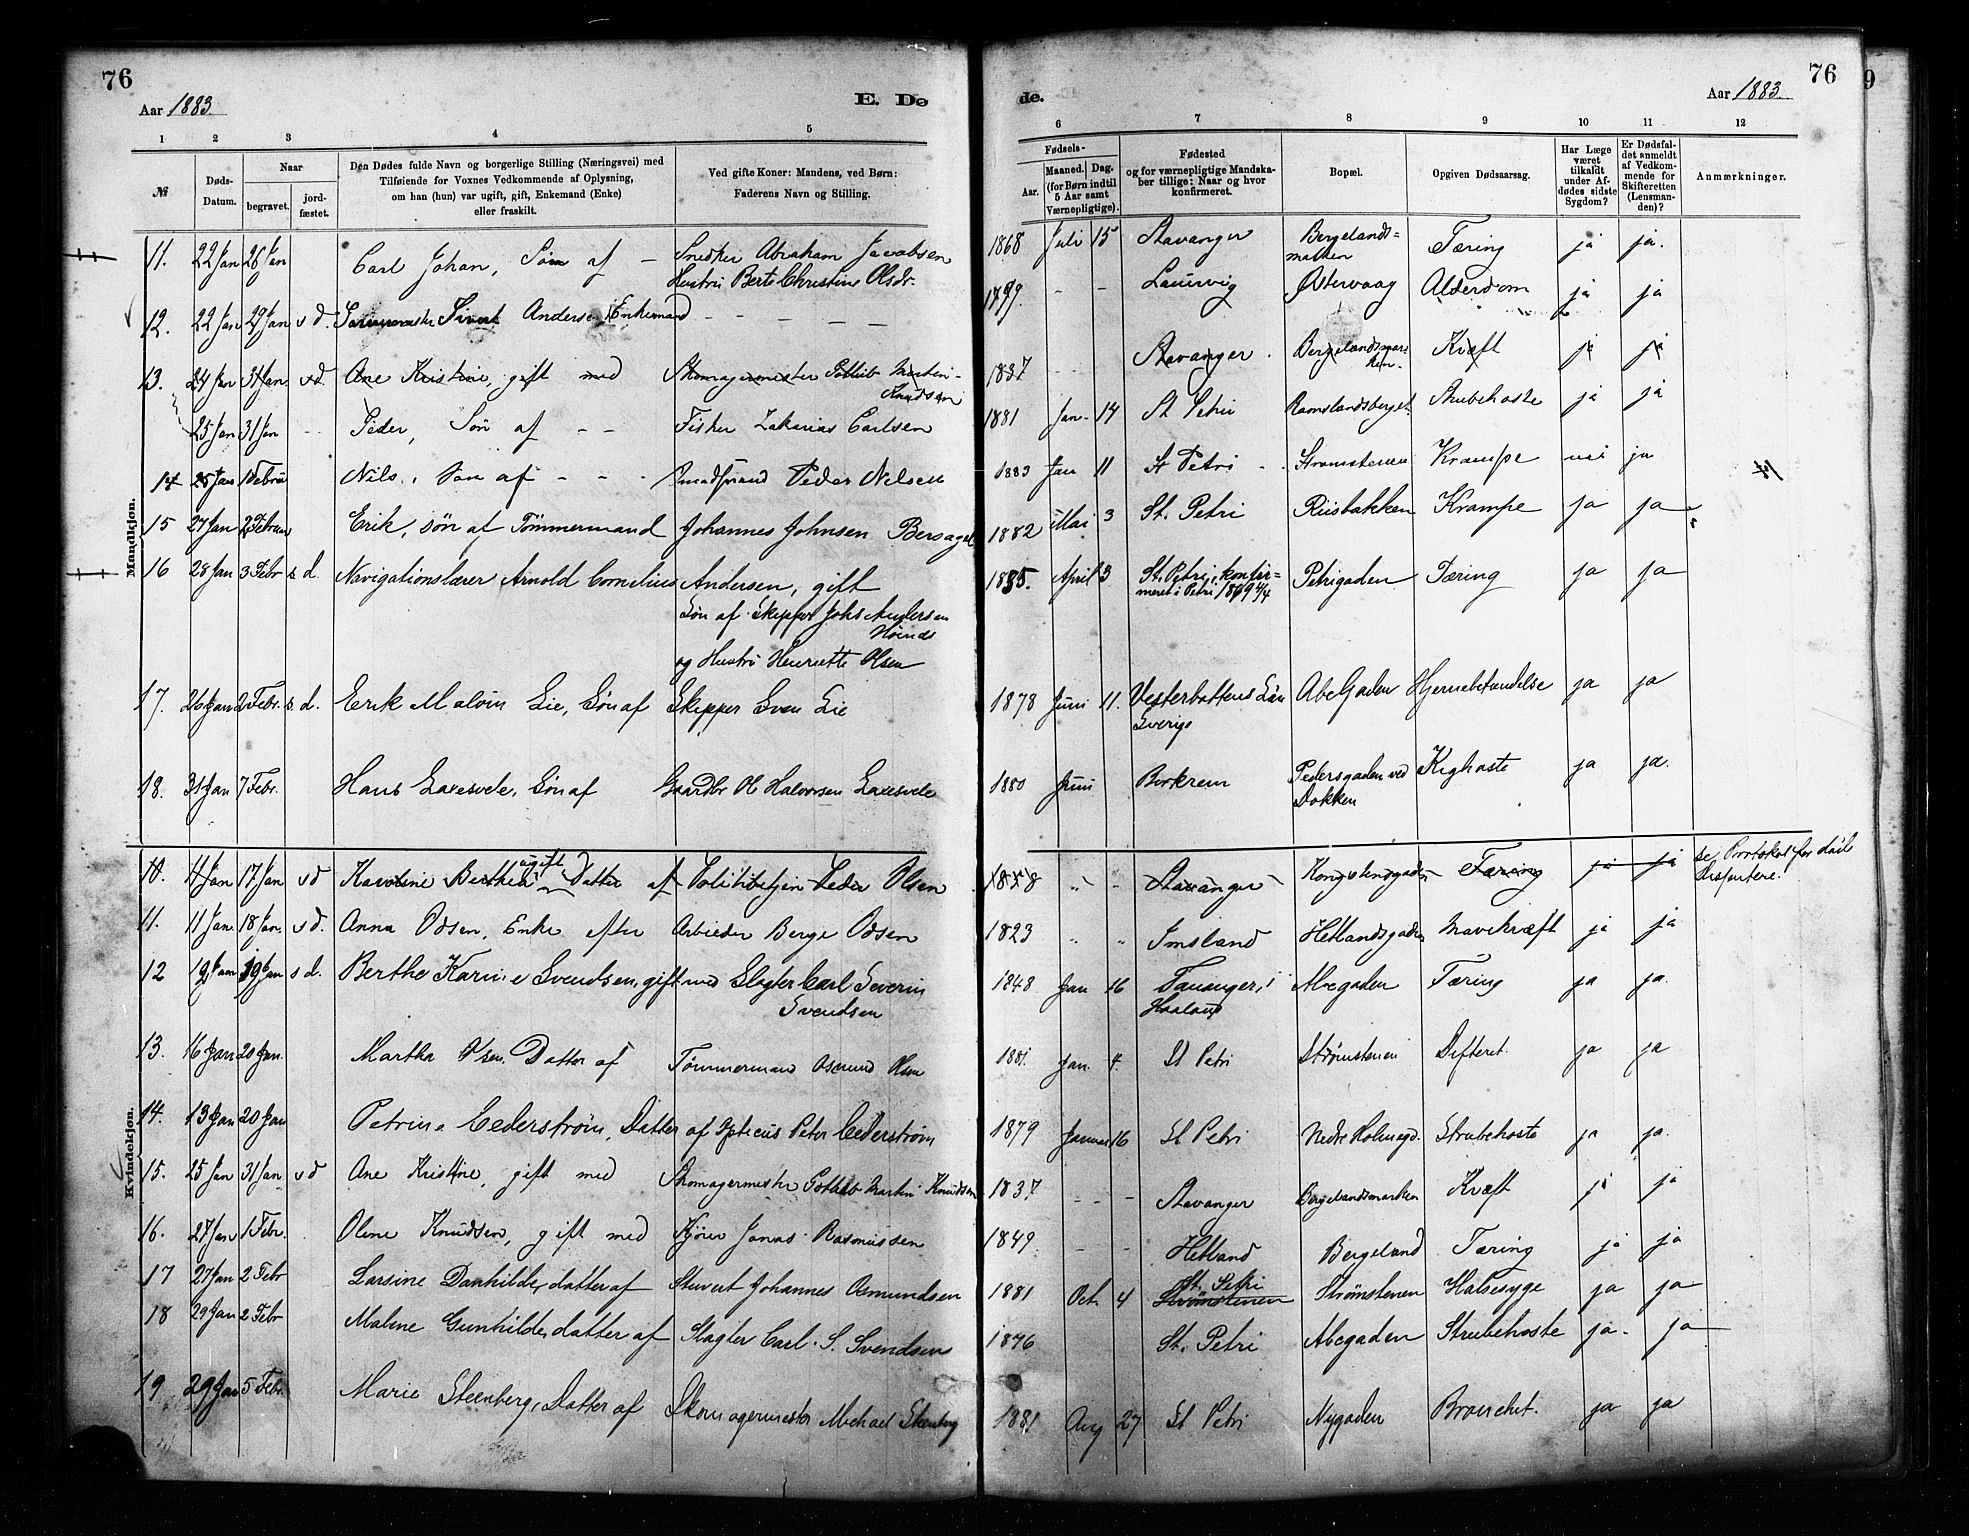 76
Aar 1883.
E. Dø
de.
Aar 1883.
76
9
1 2 3 4 5 6 7 8 9 10 11 12
№
Døds-Datum.
Naar
begravet.
jord-fæstet.
Den Dødes fulde Navn og borgerlige Stilling (Næringsvei) med
Tilføiende for Voxnes Vedkommende af Oplysning,
om han (hun) var ugift, gift, Enkemand (Enke)
eller fraskilt.
Ved gifte Koner: Mandens, ved Børn:
Faderens Navn og Stilling.
Fødsels-
Aar.
Maaned. Dag.
(for Børn indtil
5 Aar samt
Værnepligtige).
Fødested
og for værnepligtige Mandska-
ber tillige: Naar og hvor
konfirmeret.
Bopæl.
Opgiven Dødsaarsag.
Har Læge
været
tilkaldt
under Af-
dødes sidste
Sygdom?
Er Dødsfal-
det anmeldt
af Vedkom-
mende for
Skifteretten
(Lensman-
den)?
Anmærkninger.
Mandkjøn.
11. 22 Jan 26 Jan Carl Johan, Søn af — Snedker Abraham Jacobsen 1868 Juli 15 Stavanger Bergelands= Tæring ja ja.
Hustru Berte Christine Olsdr. marken
12. 22 Jan 29 Jan s d. Sivert Andersen Enkemand - - - - - 1799 - - Laurvig Østervaag Alderdom ja ja
13. 24 Jan 31 Jan s d. Ane Kristine, gift med Skomagermester Gottlieb Martin- 1837 - - Stavanger. Bergelandsmar- Kræft ja ja
Knudsen ken.
25 Jan 31 Jan - - Peder, Søn af - - Fisker Zakarias Carlsen 1881 Jan- 14 St Petri Ramslandsberget Strubehoste ja ja
14 25 Jan 1 Februar Nils, Søn af - - - Peder Nilsen 1883 Jan 11 St Petri - - Strømstenen Krampe nei ja 14
15 27 Jan 2 Februar Erik, søn af Tømmermand Johannes Johnsen Bersagel 1882 Mai 3 St. Petri Riisbakken Krampe ja ja
16 28 Jan 3 Febr s d. Navigationslærer Arnold Cornelius Andersen, gift 1855. April 3 St. Petri, konfir= Petrigaden Tæring ja ja
meret i Petri 1869 4/4
Søn af Skipper Johs Andersen
og Hustru Henriette Olsen
17. 26 Jan 2 Febr. s d. Erik Malvin Lie, Søn af Skipper Sven Lie 1878 Juni 11. Vesterbottens Län Abelgaden Hjernebetændelse ja ja
Sverige
18. 31 Jan 7 Febr. Hans Laxesvele, Søn af Gaardbr Ol Halvorsen Laxesvele 1880 Juni Birkrem Pedersgaden ved Kighoste ja ja.
Dokken
Kvindekjøn.
10. 11 Jan 17 Jan s d Karoline Berthea ugift Datter af Politibetjen Peder Olsen 1858 " " Stavanger Kongstensgaden Tæring ja ja se Protokol for død
Dissentere.
11. 11 Jan 18 Jan. s d. Anna Odsen, Enke efter Arbieder Berge Odsen 1823 " " Imsland Hetlandsgaden Mavekræft ja ja
12 12 Jan 19 Jan s d. Berthe Karine Svendsen, gift med Slagter Carl Severin 1848 Jan 16 Tananger, i Abegaden Tæring ja ja.
Svendsen Haaland
13. 16 Jan 20 Jan. Martha Olsen, Datter af Tømmermand Osmund Olsen 1881. Jan. 4. St Petri Strømstenen Difterit. ja ja
14. 13 Jan 20 Jan Petrine Cederstrøm, Datter af Opticus Peter Cederstrøm 1879 Januar 16 St Petri Nedre Holmegd. Strubehoste ja ja.
15. 25 Jan 31 Jan s d Ane Kristine, gift med Skomagermester Gottlieb Martin Knudsen 1837 - - Stavanger Bergelandsmarken Kræft ja ja
16. 27 Jan 1 Febr. Oline Knudsen, gift med Kjører Jonas Rasmussen 1849 - - Hetland Bergeland Tæring ja ja
17 27 Jan 2 Febr Larsine Danhilde, datter af Stuert Johannes Osmundsen 1881 Oct. 4 St. Petri Strømstenen Strømstenen Halsesyge ja ja
18 29 Jan 2 Febr Maline Gunhilde, datter af Slagter Carl. S. Svendsen 1876 St. Petri Abegaden Strubehoste ja. ja
19 29 Jan 5 Febr. Marie Steenberg, Datter af Skomagermester Michael Steenberg 1881 Aug 27 St Petri Nygaden Bronchit. ja ja